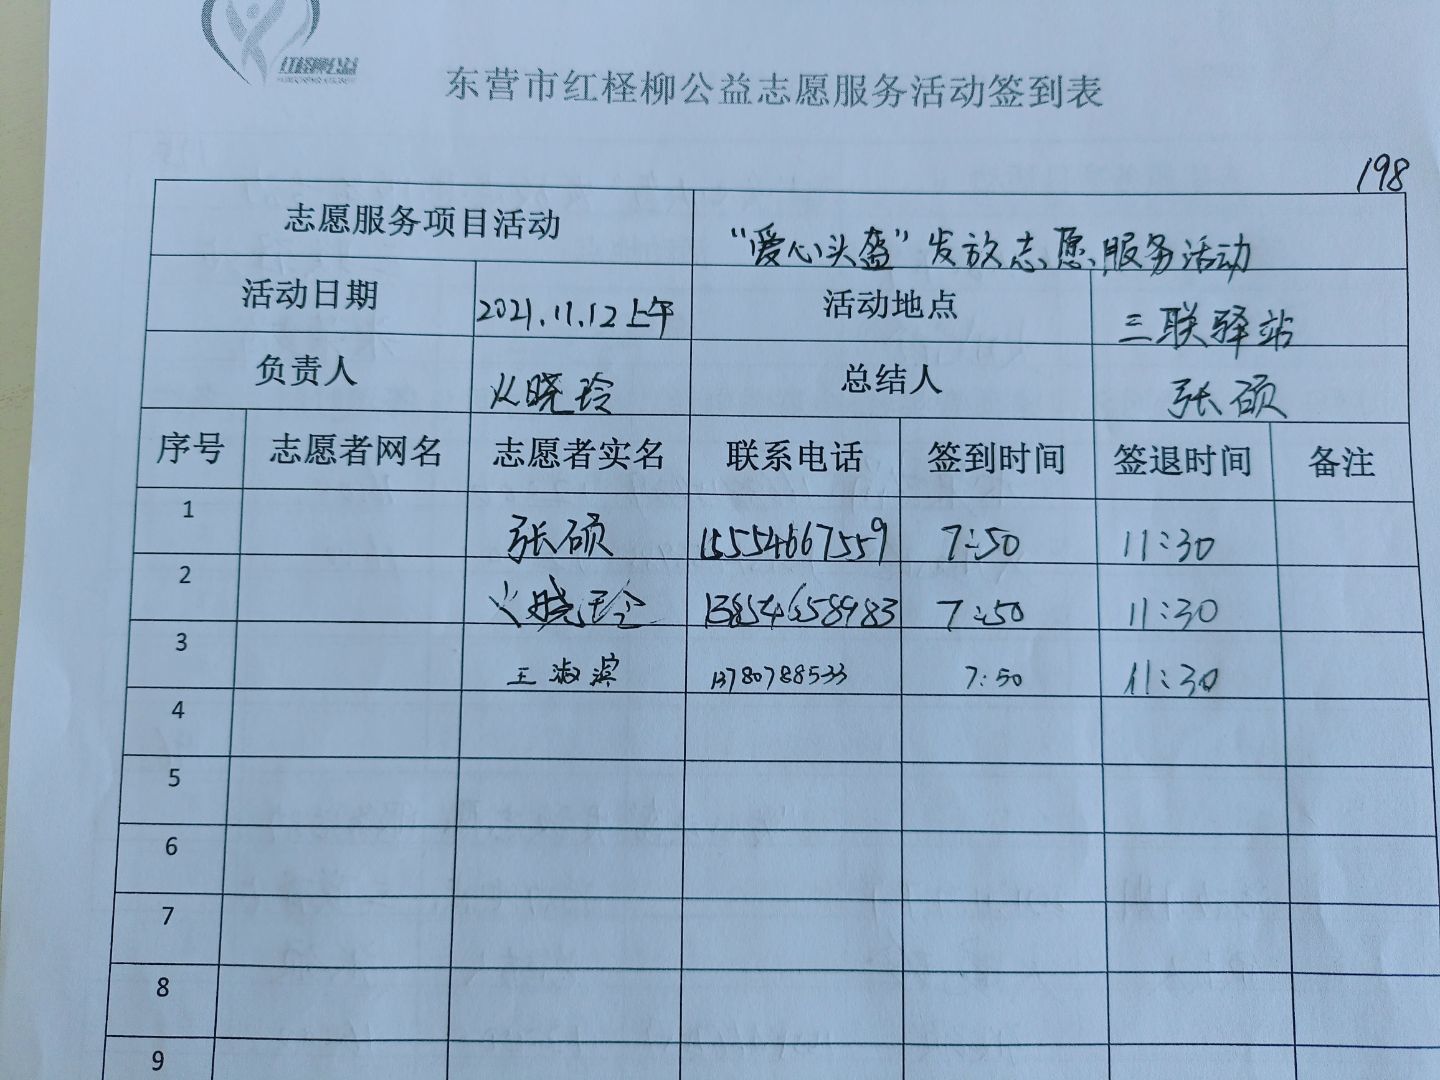 红柽柳公益
东营市红柽柳公益志愿服务活动签到表
198
志愿服务项目活动 “爱心头盔”发放志愿服务活动
活动日期 2021.11.12上午 活动地点 三联驿站
负责人 从晓玲 总结人 张硕
序号 志愿者网名 志愿者实名 联系电话 签到时间 签退时间 备注
1 张硕 15554667559 7:50 11:30
2 从晓玲 13854658983 7:50 11:30
3 王淑滨 13780788533 7:50 11:30
4
5
6
7
8
9